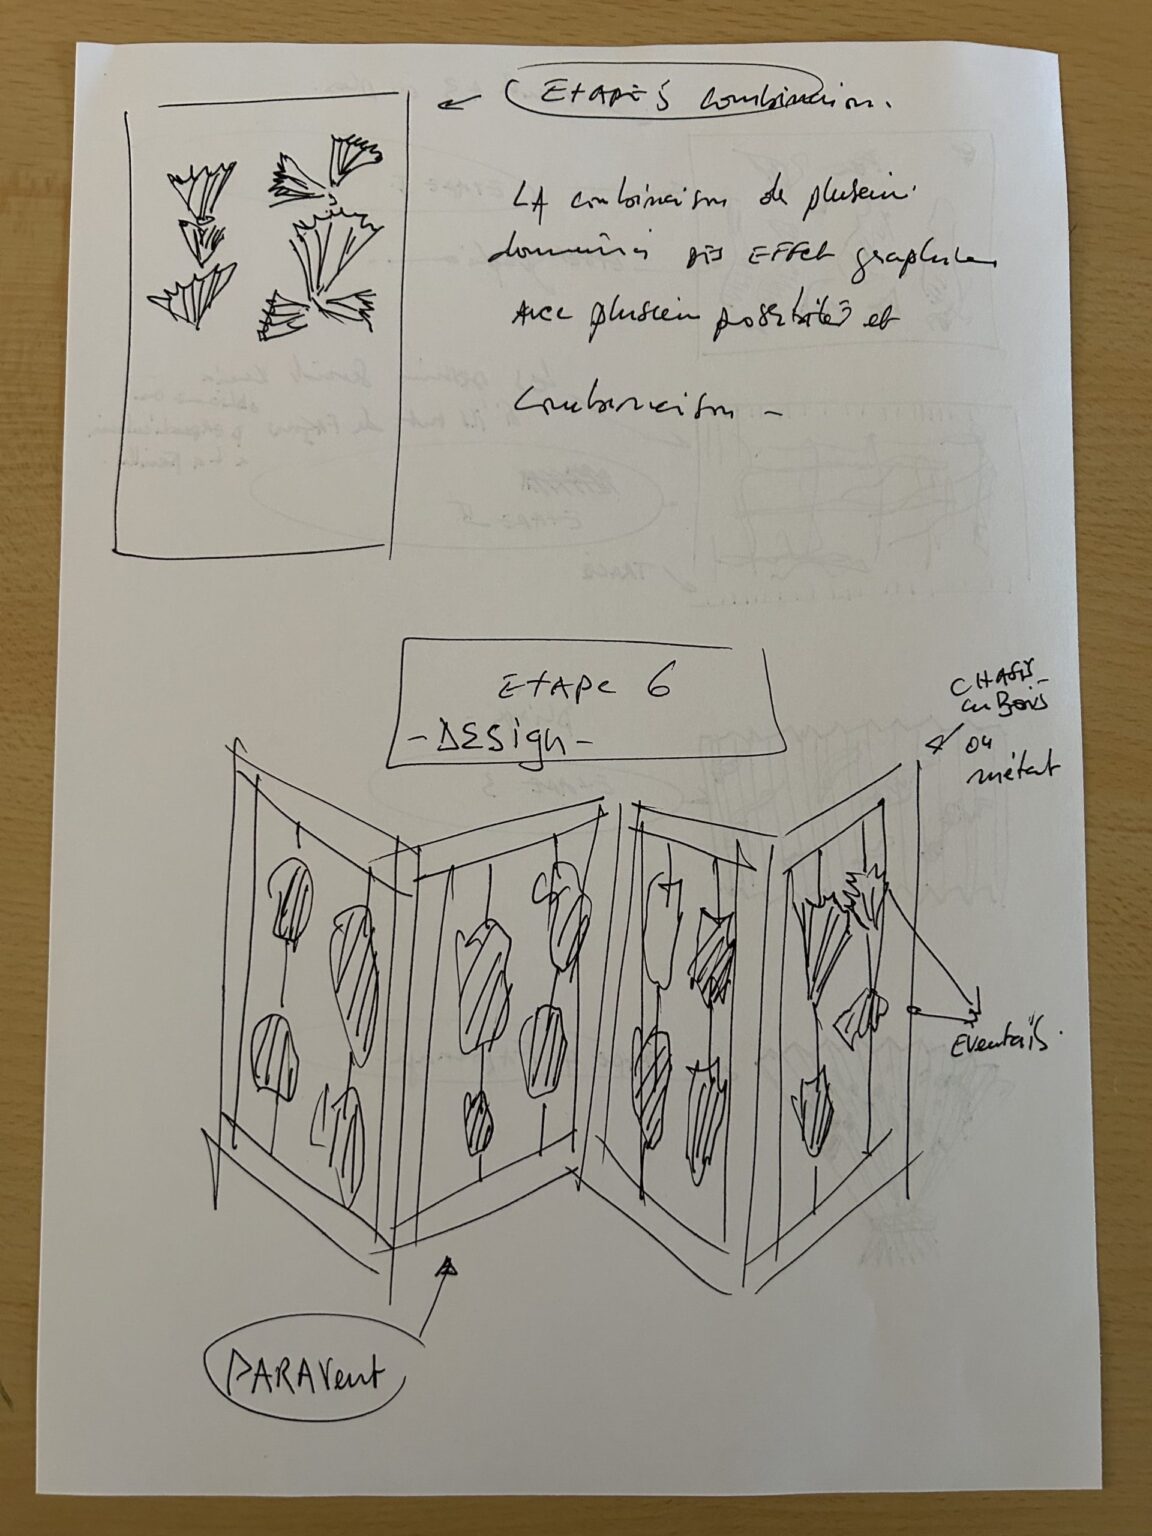 ETAPE 5 combinaison.
LA combinaison de plusieurs
des EFFET graphiques
AVEC plusieurs possibilités et
Combinaison -
ETAPE 6
- DESign -
CHASSIS
en Bois
ou
métal
Eventails.
PARAVent